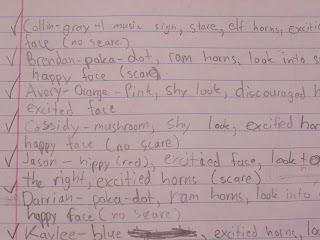 ✓ Collin-gray w/ music sign, stare, elf horns, excitie
face (no scare)
✓ Brendan-poka-dot, ram horns, look into s
happy face (scare)
✓ Avery-Orange-Pink, shy look, discouraged h
excited face
✓ Cassidy-mushroom, shy look, excitied hor
happy face (no scare)
✓ Jason-hippy (red), excitied face, look to
the right, excitied horns (scare)
✓ Darrian-poka-dot, ram horns, look into
happy face (no scare)
✓ Kaylee-blue excited horns, loo